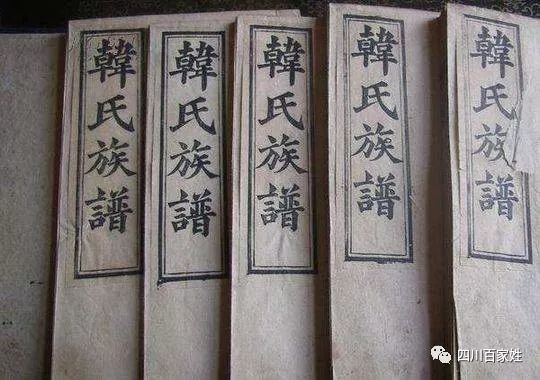 韓氏族譜
韓氏族譜
韓氏族譜
韓氏族譜
韓氏族譜
四川百家姓